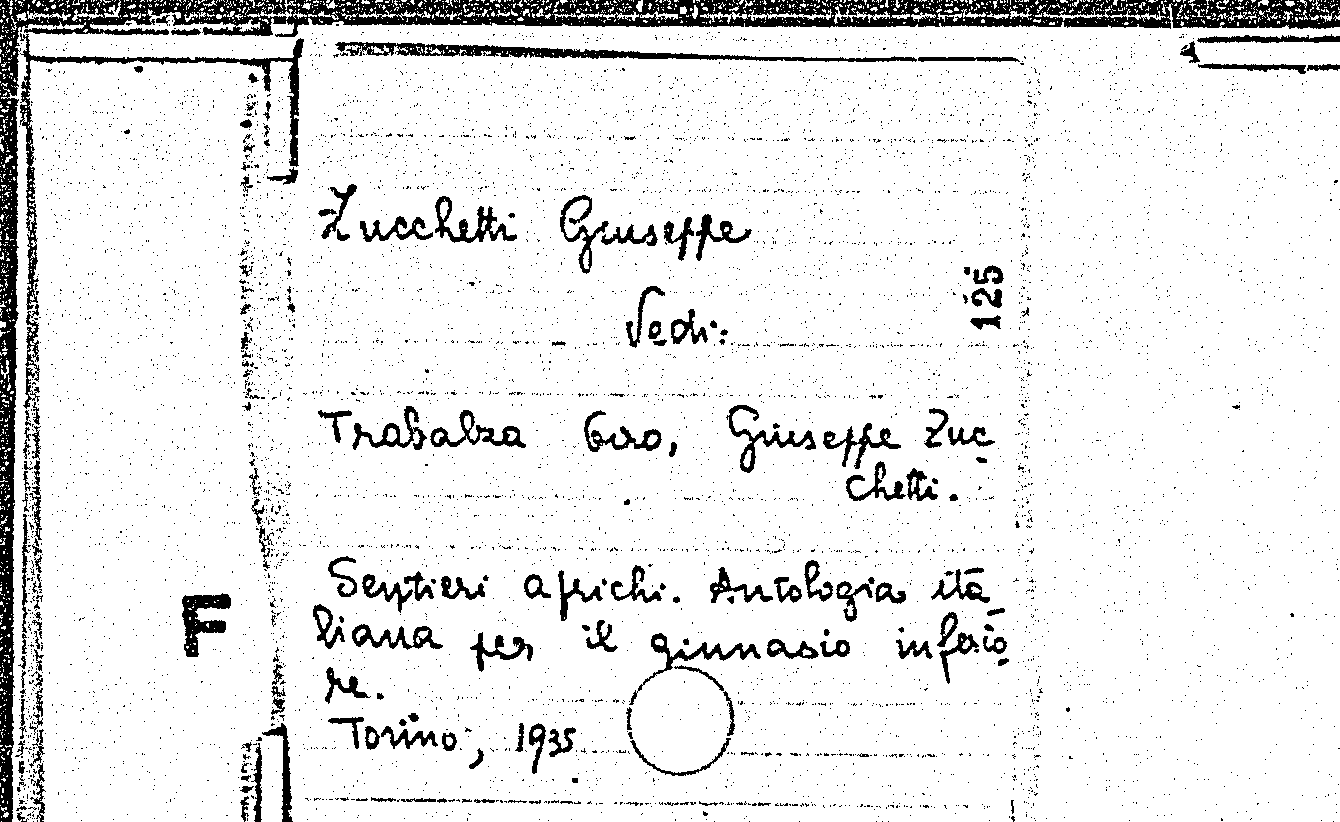 Zucchetti Giuseppe
125
Vedi:
Trabalza Ciro, Giuseppe Zuc-
chetti.
Sentieri aprichi. Antologia ita-
F
liana per il ginnasio inferio-
re.
Torino, 1935